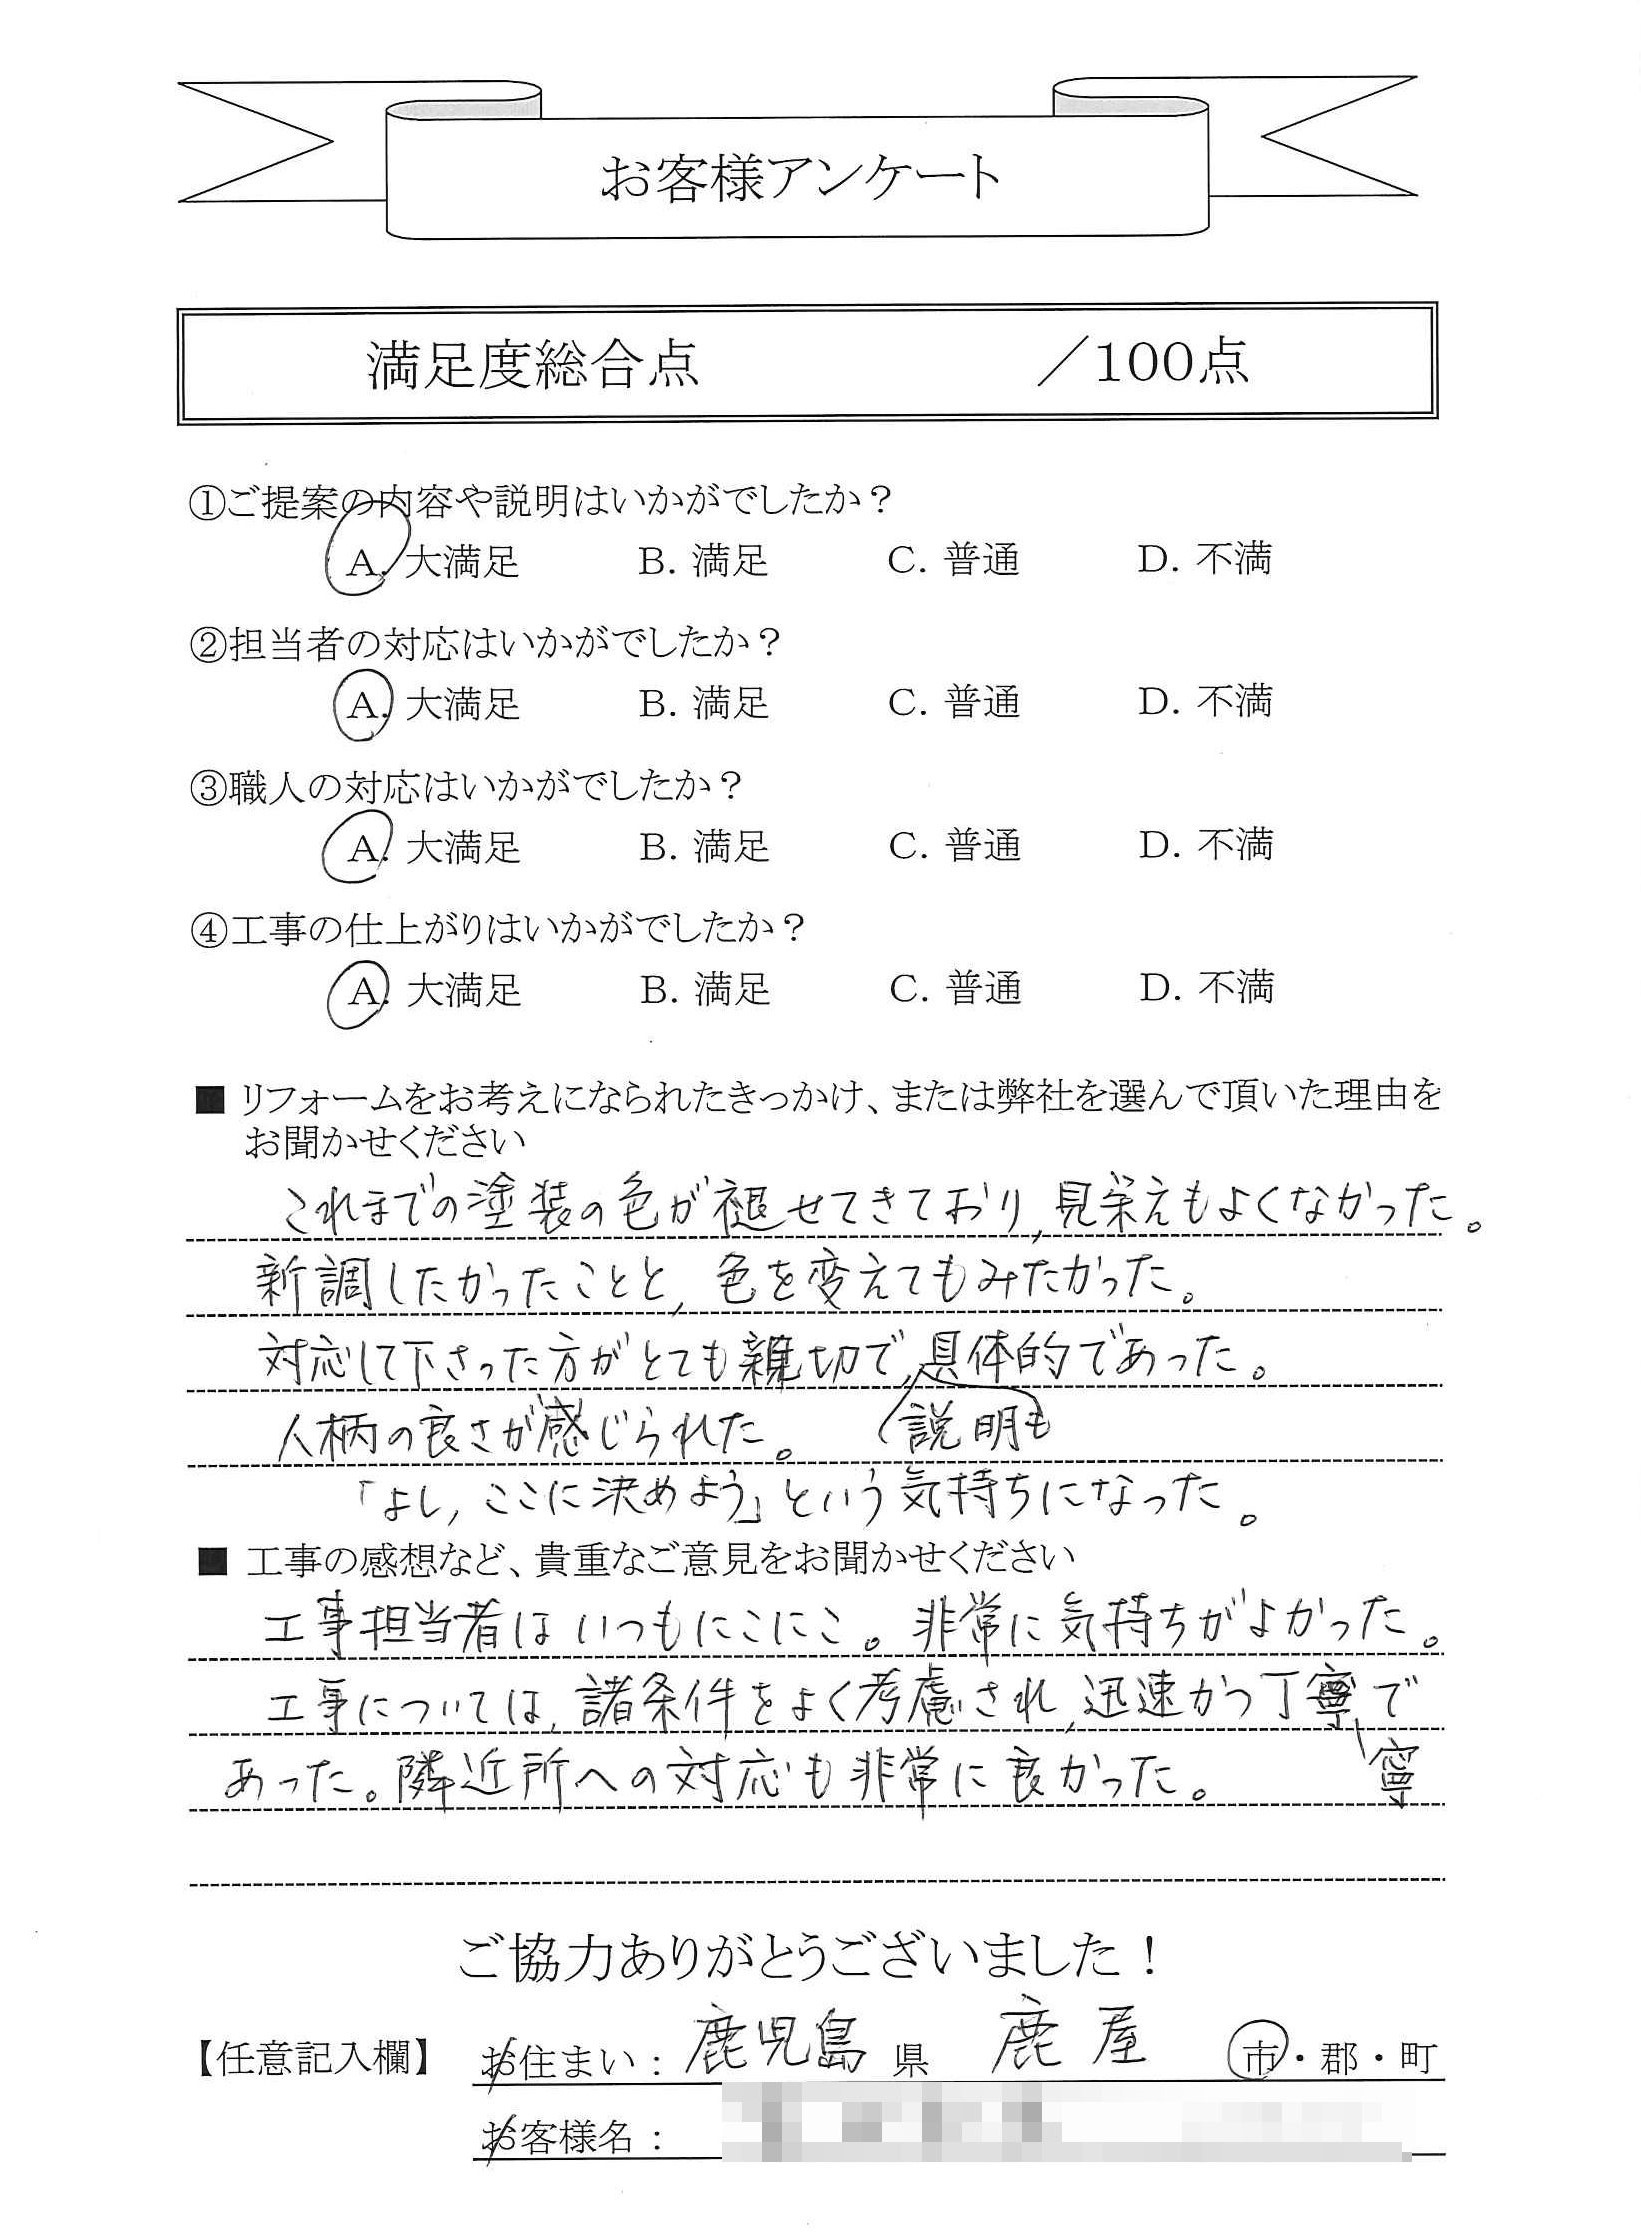 お客様アンケート
満足度総合点　　　／100点
①ご提案の内容や説明はいかがでしたか？
A. 大満足　B. 満足　C. 普通　D. 不満
②担当者の対応はいかがでしたか？
A. 大満足　B. 満足　C. 普通　D. 不満
③職人の対応はいかがでしたか？
A. 大満足　B. 満足　C. 普通　D. 不満
④工事の仕上がりはいかがでしたか？
A. 大満足　B. 満足　C. 普通　D. 不満
■ リフォームをお考えになられたきっかけ、または弊社を選んで頂いた理由を
お聞かせください
これまでの塗装の色が褪せてきており,見栄えもよくなかった。
新調したかったことと,色を変えてもみたかった。
対応して下さった方がとても親切で,具体的であった。
人柄の良さが感じられた。　説明も
「よし,ここに決めよう」という気持ちになった。
■ 工事の感想など、貴重なご意見をお聞かせください
工事担当者はいつもにこにこ。非常に気持ちがよかった。
工事については,諸条件をよく考慮され,迅速かつ丁寧で
あった。隣近所への対応も非常に良かった。　寧
ご協力ありがとうございました！
【任意記入欄】　お住まい：鹿児島県　鹿屋　市・郡・町
お客様名：